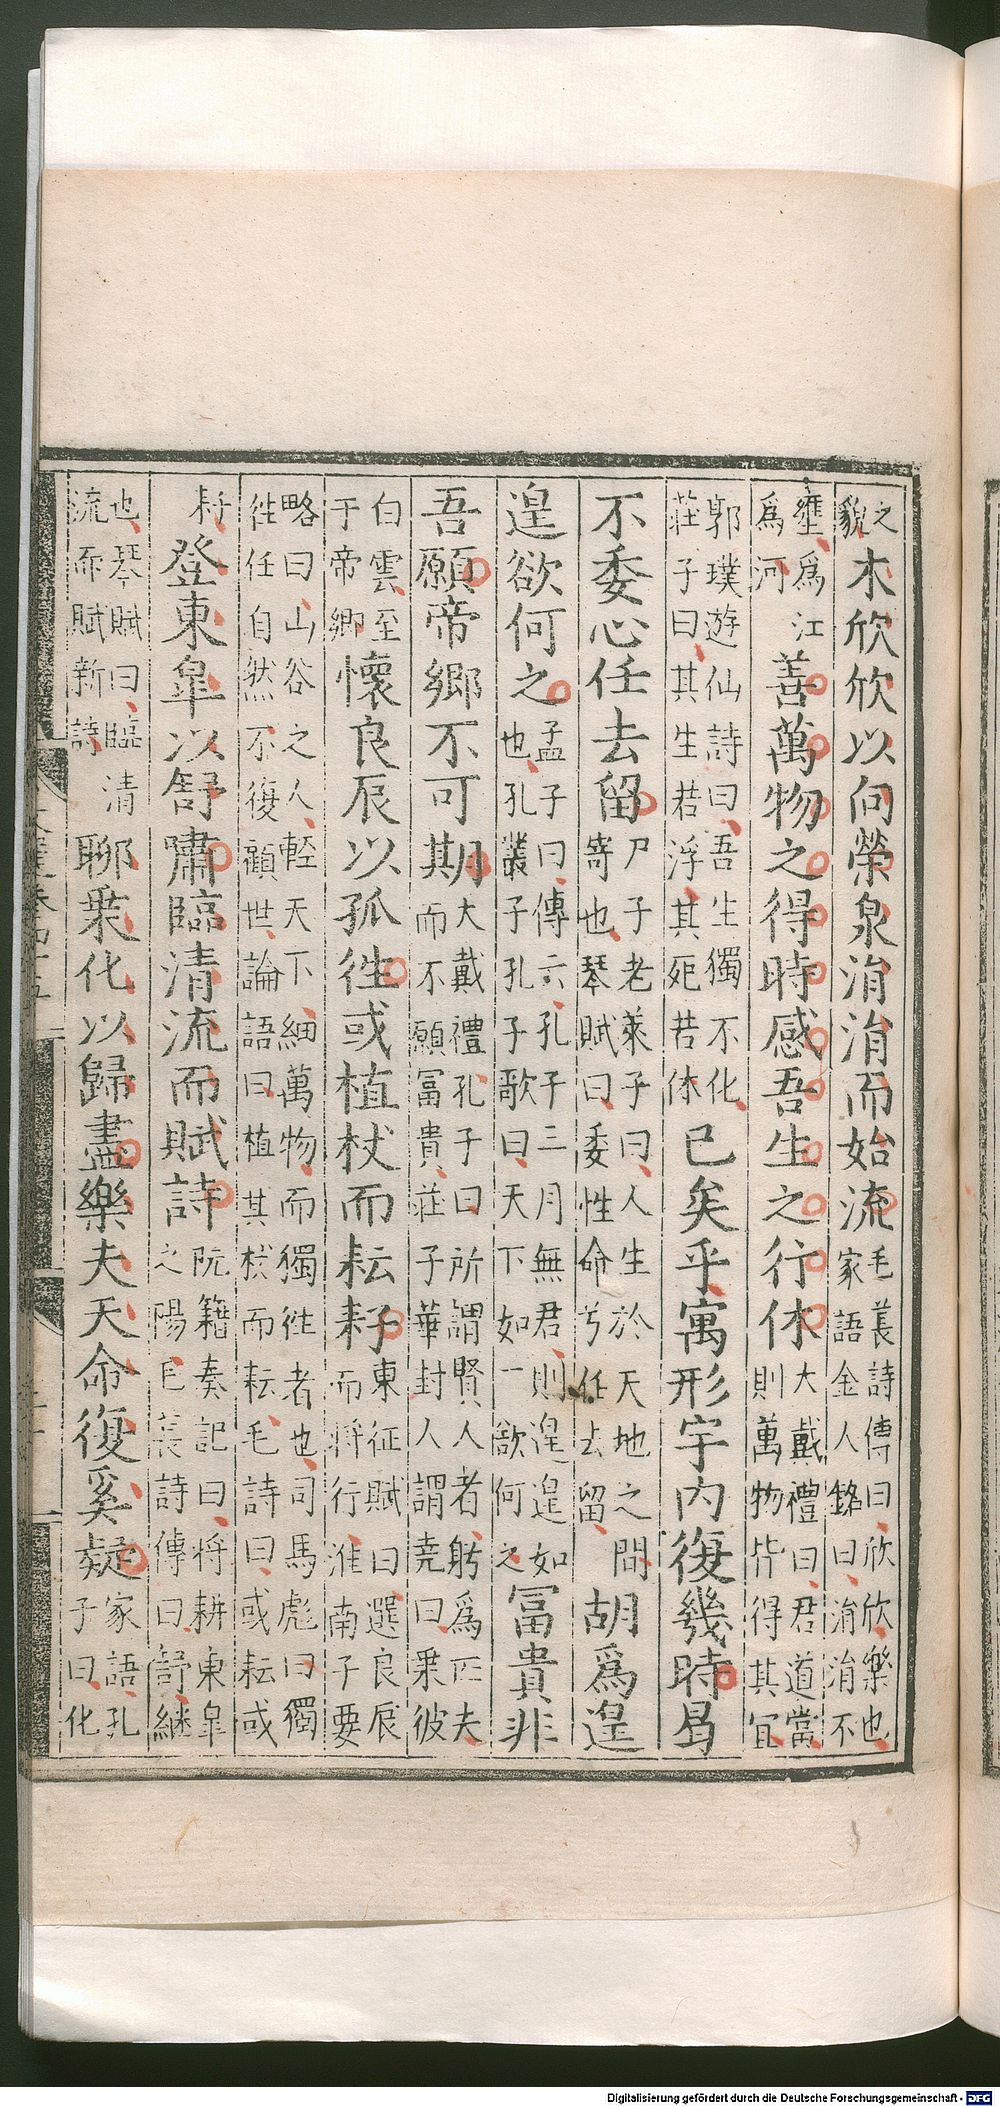 之貌木欣欣以向榮泉涓涓而始流毛萇詩傳曰欣欣樂也家語金人銘曰涓涓不
壅爲江爲河善萬物之得時感吾生之行休大戴禮曰君道當則萬物皆得其宜
郭璞遊仙詩曰吾生獨不化莊子曰其生若浮其死若休已矣乎寓形宇內復幾時曷
不委心任去留尸子老萊子曰人生於天地之間寄也琴賦曰委性命兮任去留胡爲遑
遑欲何之孟子曰傳云孔子三月無君則遑遑如也孔叢子孔子歌曰天下如一欲何之冨貴非
吾願帝鄉不可期大戴禮孔子曰所謂賢人者躬爲匹夫而不願冨貴莊子華封人謂堯曰乗彼
白雲至于帝鄉懷良辰以孤徃或植杖而耘耔東征賦曰選良辰而將行淮南子要
略曰山谷之人輕天下細萬物而獨徃者也司馬彪曰獨徃任自然不復顧世論語曰植其杖而耘毛詩曰或耘或
耔登東皐以舒嘯臨清流而賦詩阮籍奏記曰將耕東皐之陽毛萇詩傳曰舒
也琴賦曰臨清流而賦新詩聊乗化以歸盡樂夫天命復奚疑家語孔子曰化
Digitalisierung gefördert durch die Deutsche Forschungsgemeinschaft - DFG